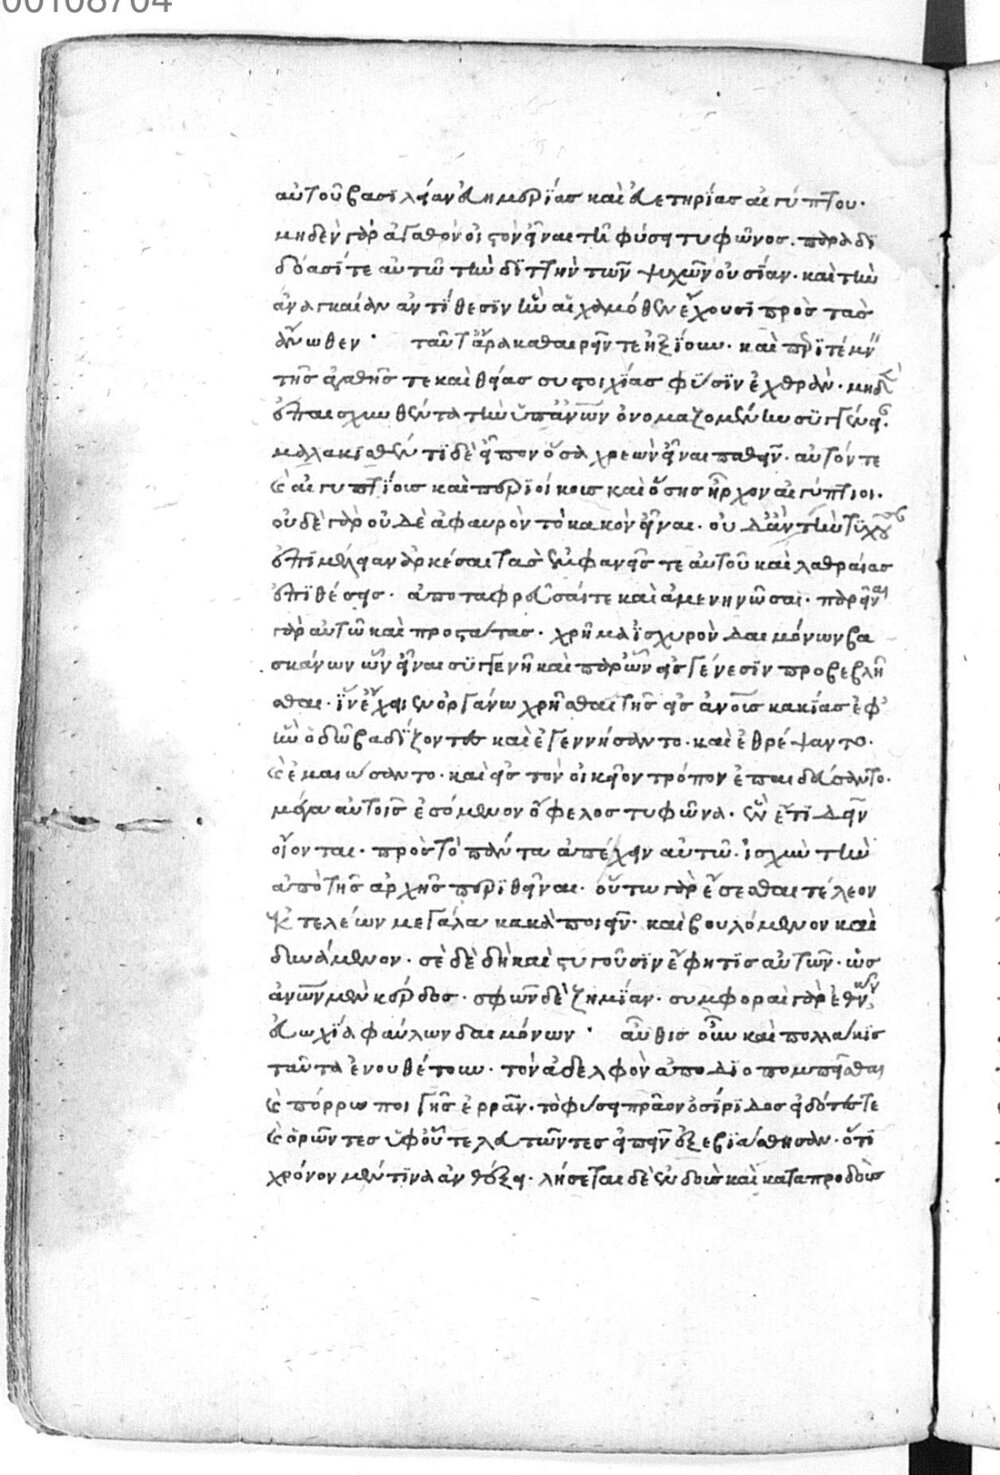 00108704
αὐτοῦ βασιλείαν εὐημερίας καὶ εὐετηρίας αἰγύπτου.
μηδὲν γὰρ ἀγαθὸν οἰστὸν εἶναι τῆ φύσει τυφῶνος. παραδι
δόασί τε αὐτῶ τὴν διττὴν τῶν ψυχῶν οὐσίαν. καὶ τὴν
ἀναγκαίαν ἀντίθεσιν ἣν αἱ χαμόθεν ἔχουσι πρὸς τὰς
ἄνωθεν. ταῦτ' ἄρα καθαιρεῖν τε ἠξίουν. καὶ περιτέμν
τῆς ἀγαθῆς τε καὶ θείας συστοιχίας φύσιν ἐχθράν. μηδὲ
ἐπαισχυνθέντα τὴν ὑπ' ἀνων ὀνομαζομένην συγγένει
μαλακισθέντι δὲ εἶπον ὅσα χρεὼν εἶναι παθεῖν. αὐτόν τε
καὶ αἰγυπτίοις καὶ περιοίκοις καὶ ὅσης ἦρχον αἰγύπτιοι.
οὐδὲ γὰρ οὐδὲ ἀφαυρὸν τὸ κακὸν εἶναι. οὐδ' ἂν τὴν τυχοῦσ
ἐπιμέλειαν ἀρκέσαι τὰς ἐμφανεῖς τε αὐτοῦ καὶ λαθραίας
ἐπιθέσεις. ἀποταφρεῦσαί τε καὶ ἀμενηνῶσαι. παρεῖναι
γὰρ αὐτῶ καὶ προστάτας. χρῆμα ἰσχυρὸν δαιμόνων βα
σκάνων ὧν εἶναι συγγενῆ καὶ παρ' ὧν εἰς γένεσιν προβεβλῆ
σθαι. ἵν' ἔχοιεν ὀργάνω χρῆσθαι τῆς εἰς ἀνοις κακίας ἐφ'
ἣν ὁδῶ βαδίζοντες καὶ ἐγεννήσαντο. καὶ ἐθρέψαντο.
καὶ ἐμαιώσαντο. καὶ εἰς τὸν οἰκεῖον τρόπον ἐπαιδεύσαντο.
μέγα αὐτοῖς ἐσόμενον ὄφελος τυφῶνα. ἓν ἔτι δεῖν
οἴονται. πρὸς τὸ πάντα ἀπέχειν αὐτῶ. ἰσχὺν τὴν
ἀπὸ τῆς ἀρχῆς περιθεῖναι. οὕτω γὰρ ἔσεσθαι τέλεον
ἐκ τελείων μεγάλα κακὰ ποιεῖν. καὶ βουλόμενον καὶ
δυνάμενον. σὲ δὲ δὴ καὶ στυγοῦσιν ἔφη τὶς αὐτῶν. ὡς
ἀνων μὲν κέρδος. σφῶν δὲ ζημίαν. συμφοραὶ γὰρ ἐθνῶν
εὐωχία φαύλων δαιμόνων. αὖθις οὖν καὶ πολλάκις
ταῦτα ἐνουθέτουν. τὸν ἀδελφὸν ἀποδιοπομπεῖσθαι
καὶ πόρρω ποι γῆς ἐρρᾶν. τὸ φύσει πρᾶον ὀσίριδος εἰδότες τε
καὶ ὁρῶντες ὑφ' οὗ τελευτῶντες εἰπεῖν ἐξεβιάσθησαν. ὅτι
χρόνον μέν τινα ἀνθέξει. λήσεται δὲ ἐνδοὺς καὶ καταπροδοὺς